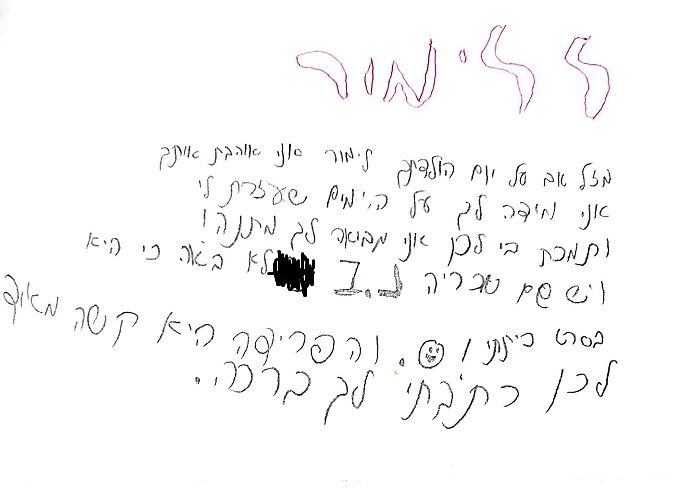 ללימור
מזל טוב על יום הולדתך לימור אני אוהבת אותך
אני מודה לך על הימים שעזרת לי
ותמכת בי לכן אני מביאה לך מתנה!
ויש שם סוכריה לא באה כי היא
בסרט כיתתי ! והפרידה היא קשה מאוד
לכן כתבתי לך ברכה.